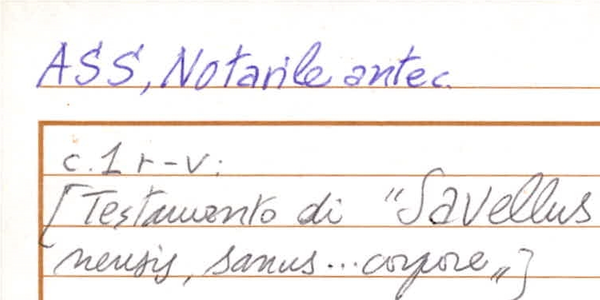 ASS, Notarile antec.
c.1 r-v:
[Testamento di "Savellus
nensis, sanus...corpore"]